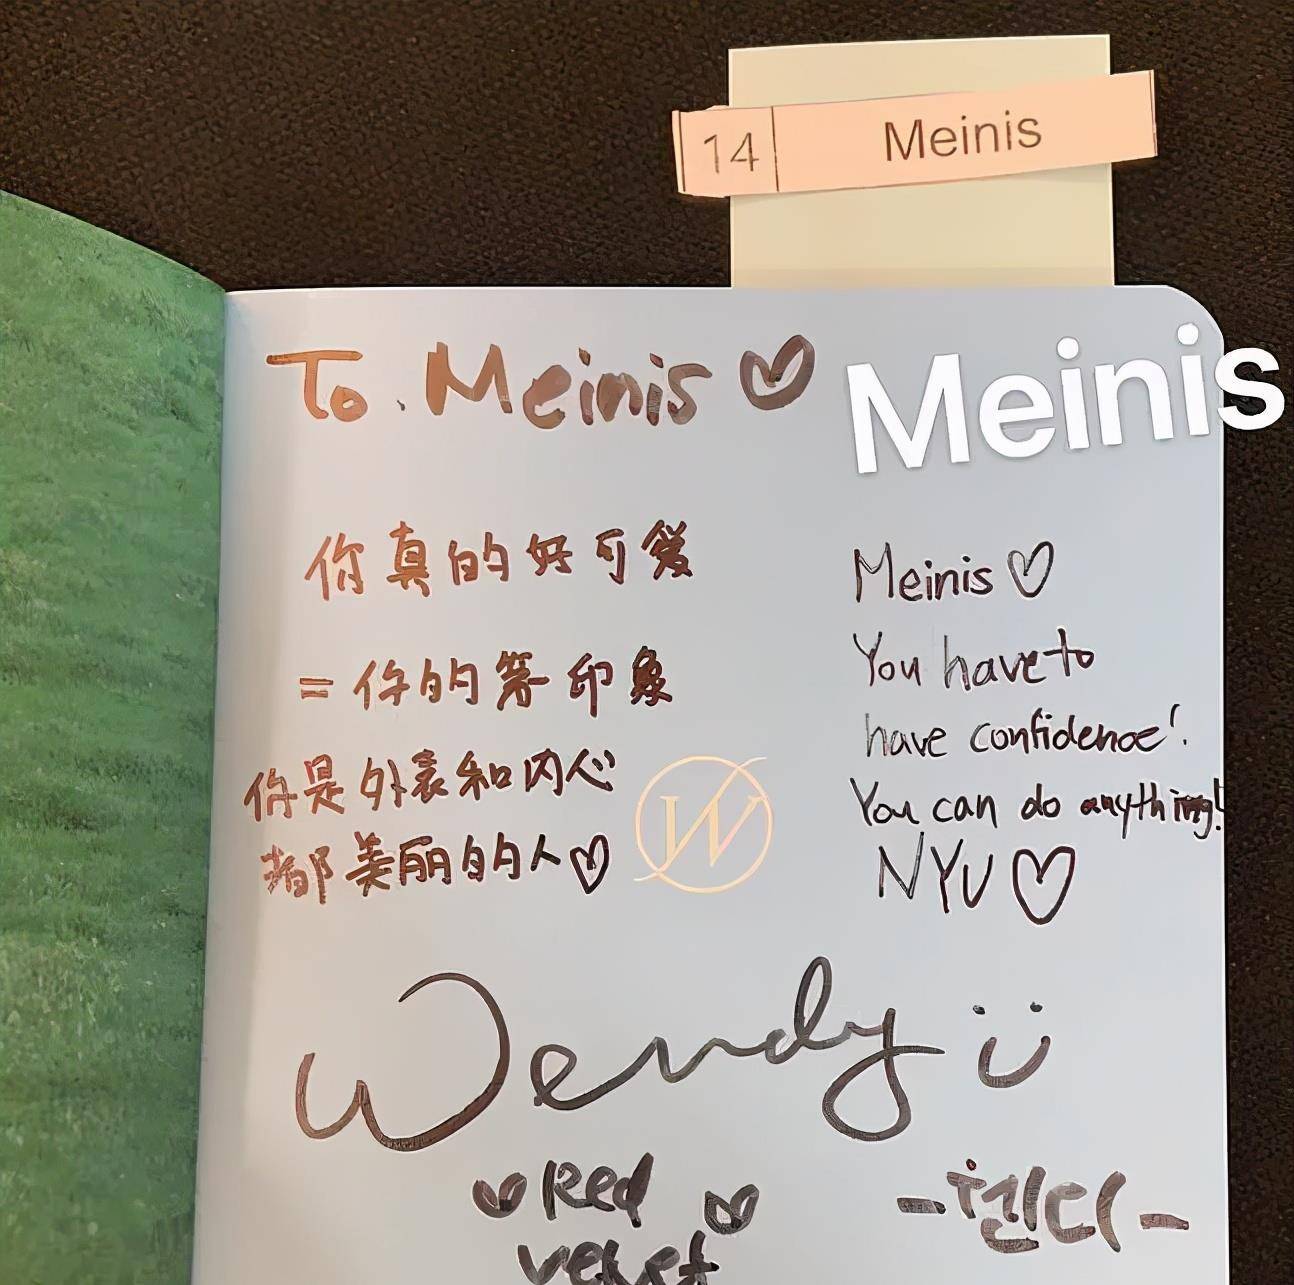 14 Meinis
Meinis
To. Meinis ♡
你真的好可爱
= 你的第一印象
你是外表和内心
都美丽的人♡
W
Meinis ♡
You have to
have confidence!
You can do anything!
NYU ♡
Wendy :)
♡ Red ♡
Velvet
-웬디-